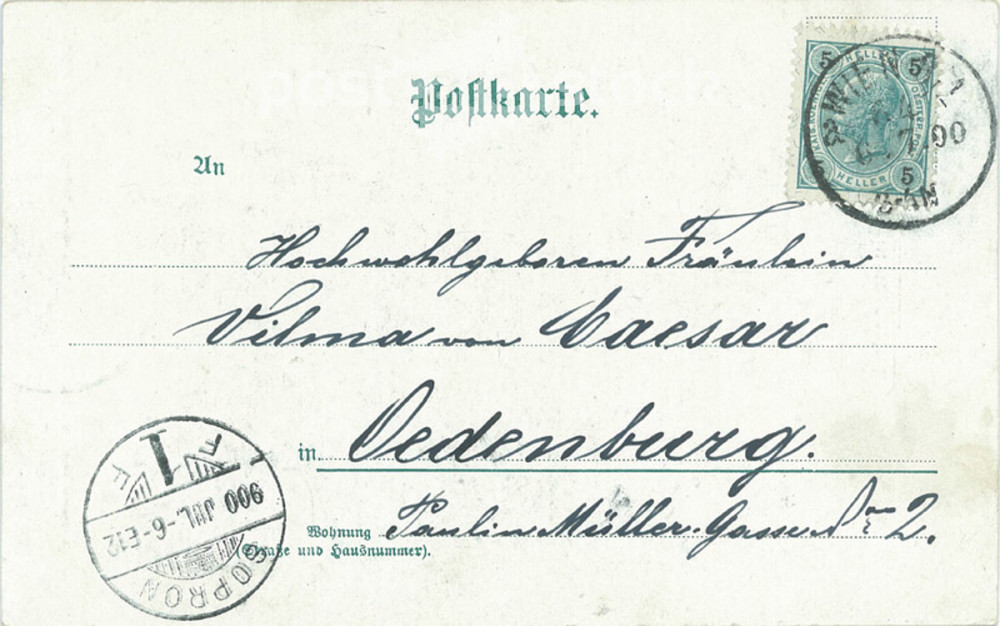 Postkarte.
5 HELLER 5
HELLER 5
WIEN
6 7 00
An
Hochwohlgeboren Fräulein
Vilma von Caesar
in Oedenburg.
Wohnung Paulin Müller-Gasse No 2.
(Straße und Hausnummer).
900 JUL.-6-E12
SOPRON